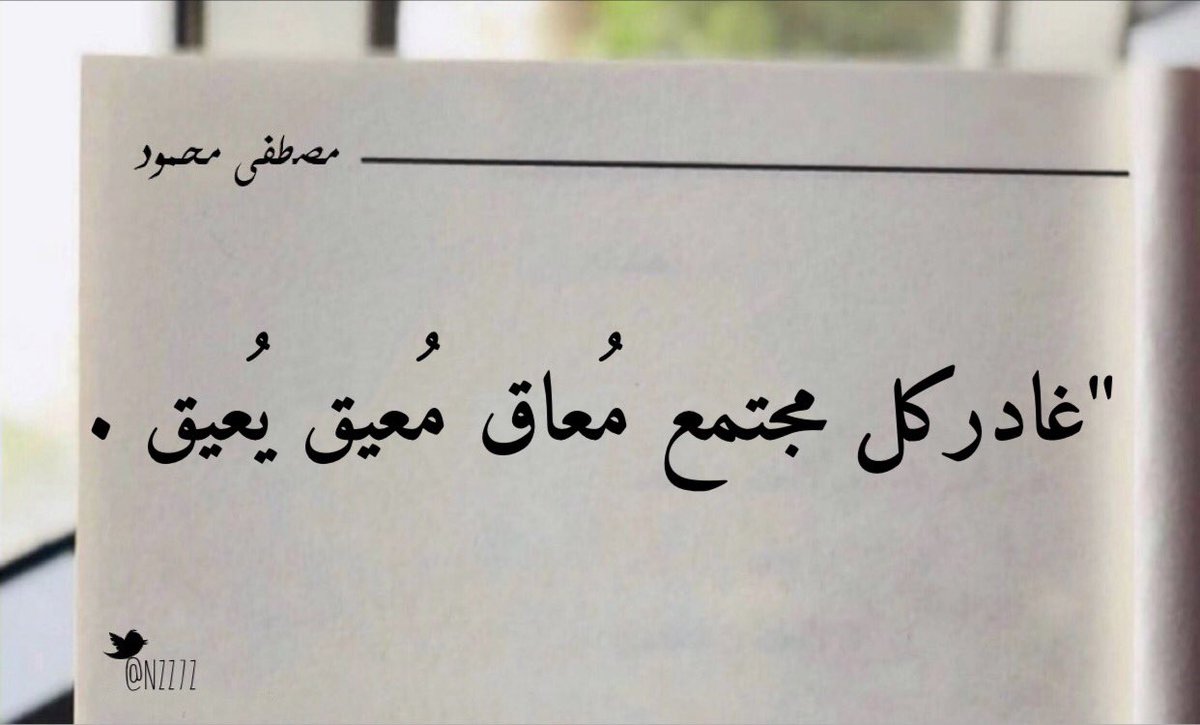 مصطفى محمود
"غادر كل مجتمع مُعاق مُعيق يُعيق .
@NZZ7Z